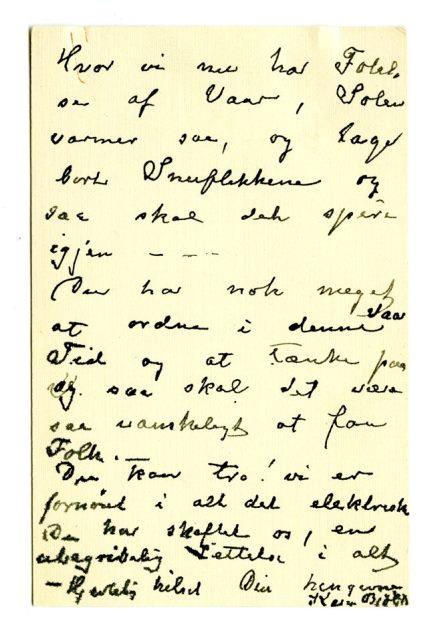 Hvor vi nu har Følel-
se af Vaar, Solen
varmer saa, og tager
bort Sneflekkene og
saa skal det spire
igjen - - -
Du har nok meget
at ordne i denne Vaar
Tid og at tænke paa
og saa skal det være
saa vanskeligt at faa
Folk.
Du kan tro! vi er
fornøiet i alt det elektriske
Du har skaffet os, en
ubegribelig Lettelse i alt
- Hjertelig hilset Din hengivne